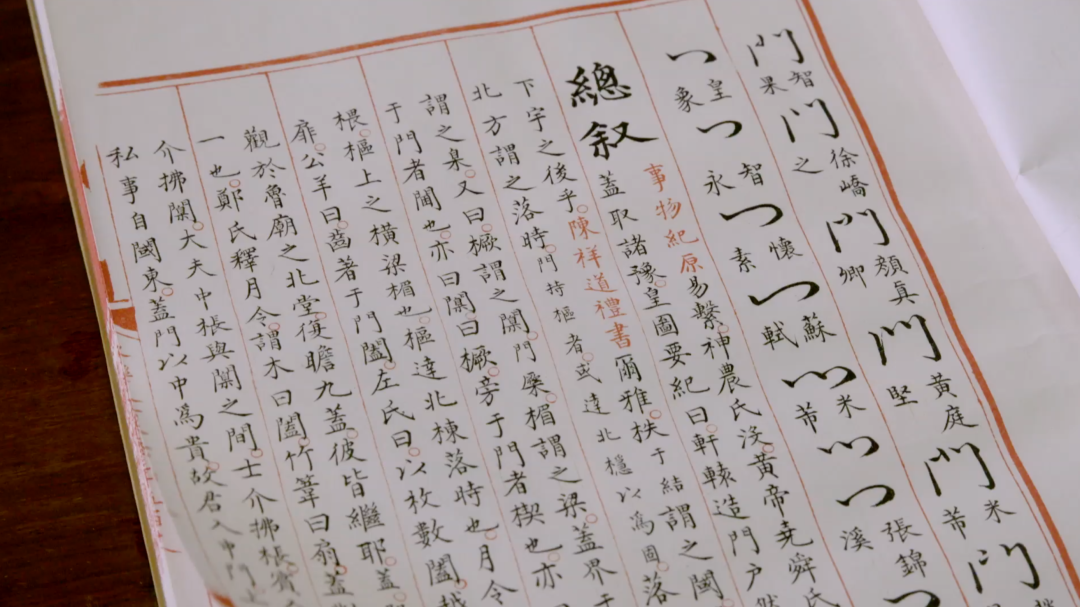 門智果門徐嶠之門顏真卿門黃庭堅門米芾門
門皇象門智永門懷素門蘇軾門米芾門門張錦溪門
總叙
事物紀原易繫神農氏沒黃帝堯舜氏
蓋取諸豫皇圖要紀曰軒轅造門戶然
下宇之後乎陳祥道禮書爾雅柣于結謂之閾
北方謂之落時門持樞者或達北檼以為固落
謂之臬又曰橛謂之闑門戾楣謂之梁蓋界于
于門者闑也亦曰闑曰橛旁于門者楔也亦
椳樞上之橫梁楣也樞達北棟落時也月令
扉公羊曰齒著于門闔左氏曰以枚數闔越
觀於魯廟之北堂復瞻九蓋彼皆繼耶蓋
一也鄭氏釋月令謂木曰闔竹葦曰扇蓋
介拂闑大夫中棖與闑之間士介拂棖賓
私事自闑東蓋門以中為貴故君入中門上